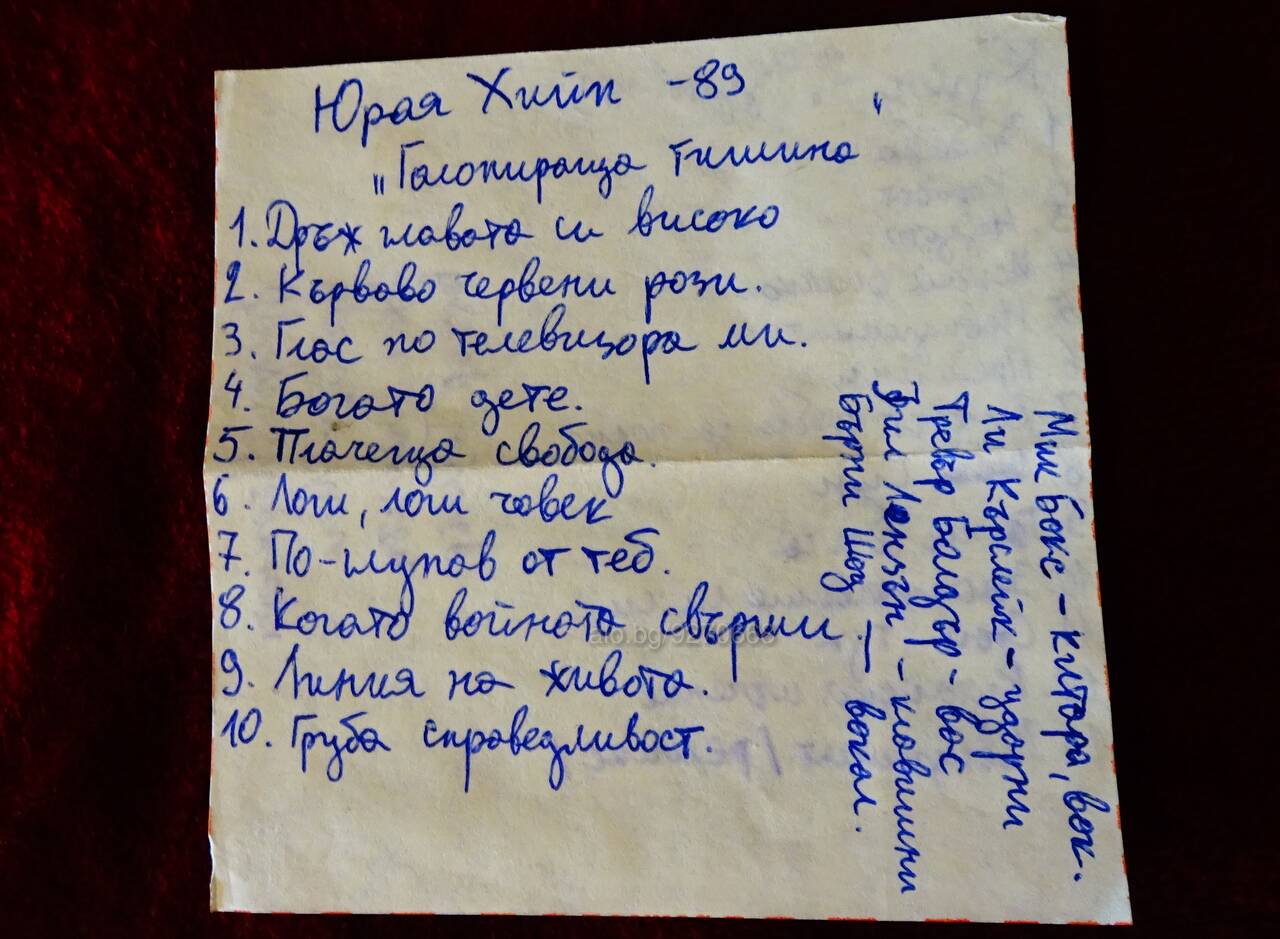 Юрая Хийп -89
„Галопираща тишина"
1. Дръж главата си високо
2. Кърваво червени рози.
3. Глас по телевизора ми.
4. Богато дете.
5. Плачеща свобода.
6. Лош, лош човек
7. По-глупав от теб.
8. Когато войната свърши
9. Линия на живота.
10. Груба справедливост.
Мик Бокс - китара, вок.
Ли Кърслейк - ударни
Тревър Балдър - бас
Фил Лензън - клавишни
Бърни Шоу - вокал.
alo.bg